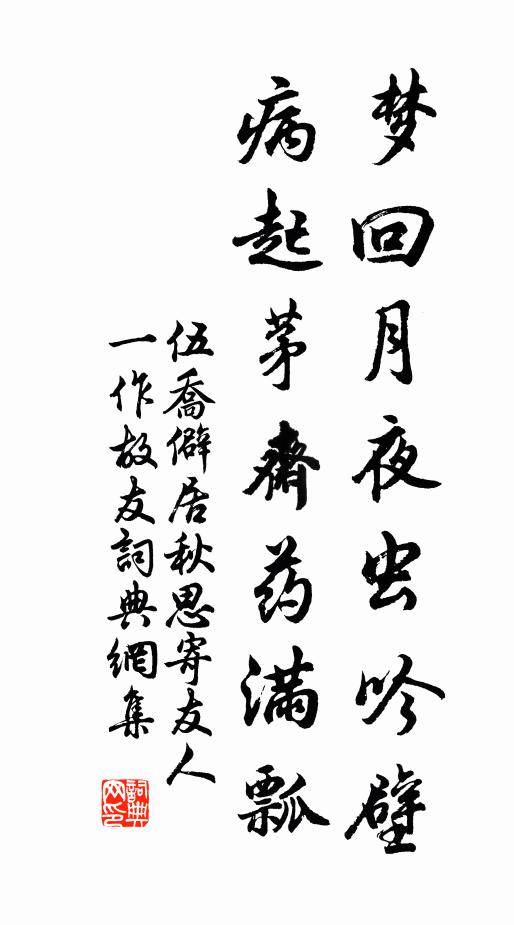 梦回月夜虫吟壁
病起茅齋药满瓢
伍喬僻居秋思寄友人
一作故友詞典網集
詞典
网印